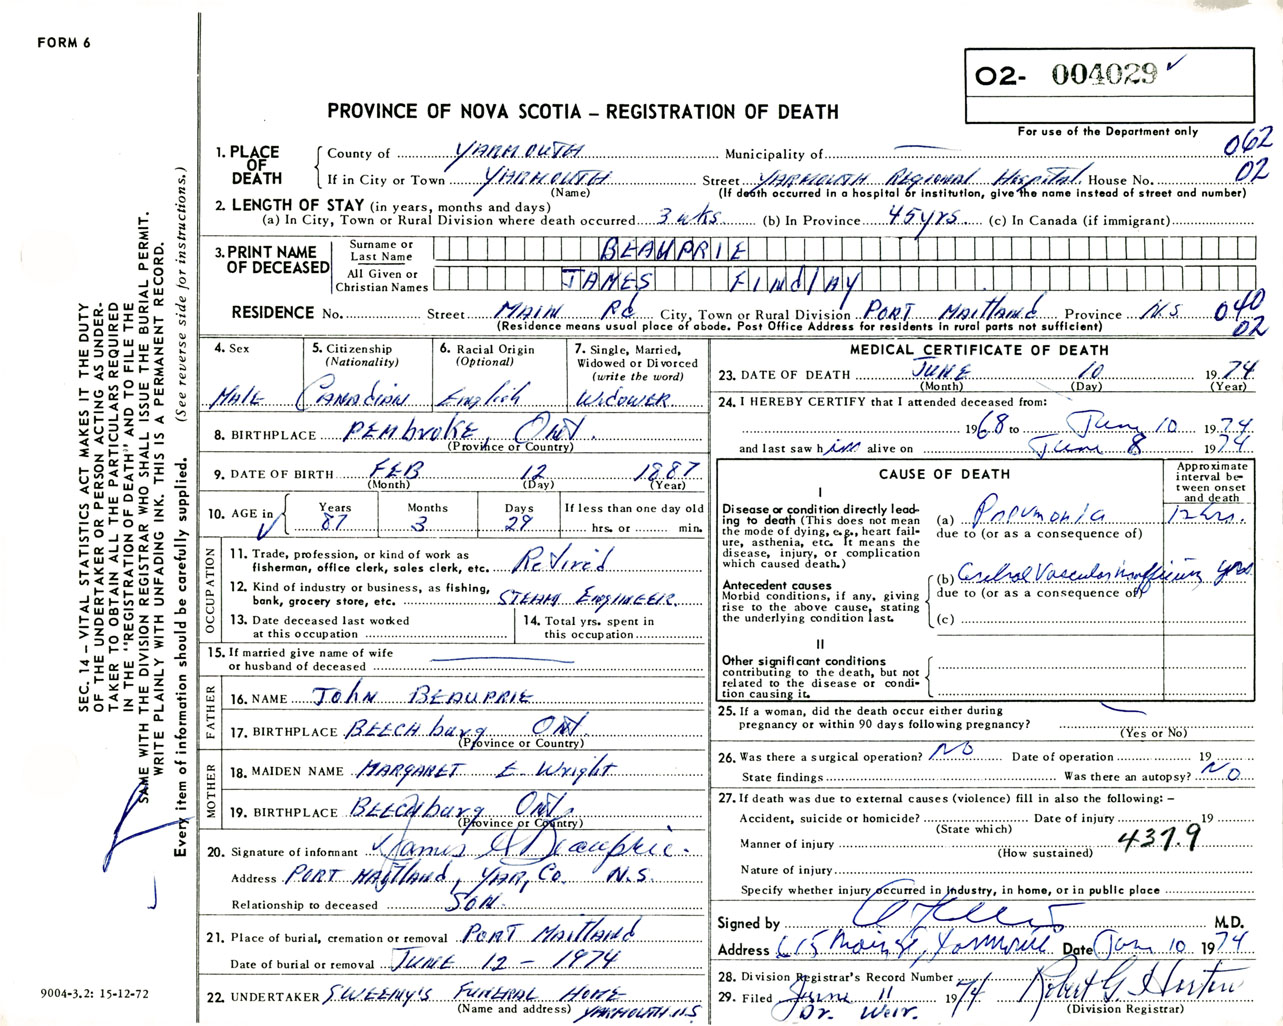 FORM 6
O2- 004029 ✓
PROVINCE OF NOVA SCOTIA – REGISTRATION OF DEATH
For use of the Department only
062
02
1. PLACE OF DEATH
County of YARMOUTH Municipality of —
If in City or Town YARMOUTH Street YARMOUTH REGIONAL Hospital House No.
(Name) (If death occurred in a hospital or institution, give the name instead of street and number)
2. LENGTH OF STAY (in years, months and days)
(a) In City, Town or Rural Division where death occurred 3 wks (b) In Province 45 yrs (c) In Canada (if immigrant)
3. PRINT NAME OF DECEASED
Surname or Last Name BEAUPRIE
All Given or Christian Names JAMES FINdlAY
RESIDENCE No. Street MAIN Rd City, Town or Rural Division PORT MAITLANd Province N.S. 040
02
(Residence means usual place of abode. Post Office Address for residents in rural parts not sufficient)
4. Sex
MALE
5. Citizenship
(Nationality)
CANADIAN
6. Racial Origin
(Optional)
English
7. Single, Married, Widowed or Divorced
(write the word)
WIDOWER
8. BIRTHPLACE PEMbROKE, ONT.
(Province or Country)
9. DATE OF BIRTH FEB 12 1887
(Month) (Day) (Year)
10. AGE in ✓
Years 87
Months 3
Days 29
If less than one day old
hrs. or min.
OCCUPATION
11. Trade, profession, or kind of work as fisherman, office clerk, sales clerk, etc. Retired
12. Kind of industry or business, as fishing, bank, grocery store, etc. STEAM ENGINEER.
13. Date deceased last worked at this occupation
14. Total yrs. spent in this occupation
15. If married give name of wife or husband of deceased —
FATHER
16. NAME JOhN BEAUPRIE
17. BIRTHPLACE BEECHburg ONT.
(Province or Country)
MOTHER
18. MAIDEN NAME MARGARET E. Wright
19. BIRTHPLACE BEECHburg ONT.
(Province or Country)
20. Signature of informant James Beauprie.
Address PORT MAITLANd, YAR, Co. N.S.
Relationship to deceased SON.
21. Place of burial, cremation or removal PORT MAITLANd
Date of burial or removal JUNE 12 – 1974
22. UNDERTAKER SWEENY'S FUNERAL HOME
(Name and address) YARMOUTH N.S.
MEDICAL CERTIFICATE OF DEATH
23. DATE OF DEATH JUNE 10 1974
(Month) (Day) (Year)
24. I HEREBY CERTIFY that I attended deceased from:
1968 to June 10 1974
and last saw him alive on June 8 1974
CAUSE OF DEATH
Approximate interval between onset and death
I
Disease or condition directly leading to death (This does not mean the mode of dying, e.g., heart failure, asthenia, etc. It means the disease, injury, or complication which caused death.)
(a) Pneumonia 12 hrs.
due to (or as a consequence of)
Antecedent causes
Morbid conditions, if any, giving rise to the above cause, stating the underlying condition last.
(b) Cerebral Vascular insufficiency yrs
due to (or as a consequence of)
(c)
II
Other significant conditions
contributing to the death, but not related to the disease or condition causing it.
25. If a woman, did the death occur either during pregnancy or within 90 days following pregnancy? —
(Yes or No)
26. Was there a surgical operation? NO Date of operation 19
State findings Was there an autopsy? NO
27. If death was due to external causes (violence) fill in also the following: –
Accident, suicide or homicide? Date of injury 19
(State which)
Manner of injury 437.9
(How sustained)
Nature of injury
Specify whether injury occurred in Industry, in home, or in public place
Signed by M.D.
Address 615 Main St, Yarmouth Date June 10 1974
28. Division Registrar's Record Number
29. Filed June 11 1974 Robert G. Horton
Dr. Weir. (Division Registrar)
SEC. 14 – VITAL STATISTICS ACT MAKES IT THE DUTY
OF THE UNDERTAKER OR PERSON ACTING AS UNDER-
TAKER TO OBTAIN ALL THE PARTICULARS REQUIRED
IN THE "REGISTRATION OF DEATH" AND TO FILE THE
SAME WITH THE DIVISION REGISTRAR WHO SHALL ISSUE THE BURIAL PERMIT.
WRITE PLAINLY WITH UNFADING INK. THIS IS A PERMANENT RECORD.
Every item of information should be carefully supplied. (See reverse side for instructions.)
9004-3.2: 15-12-72